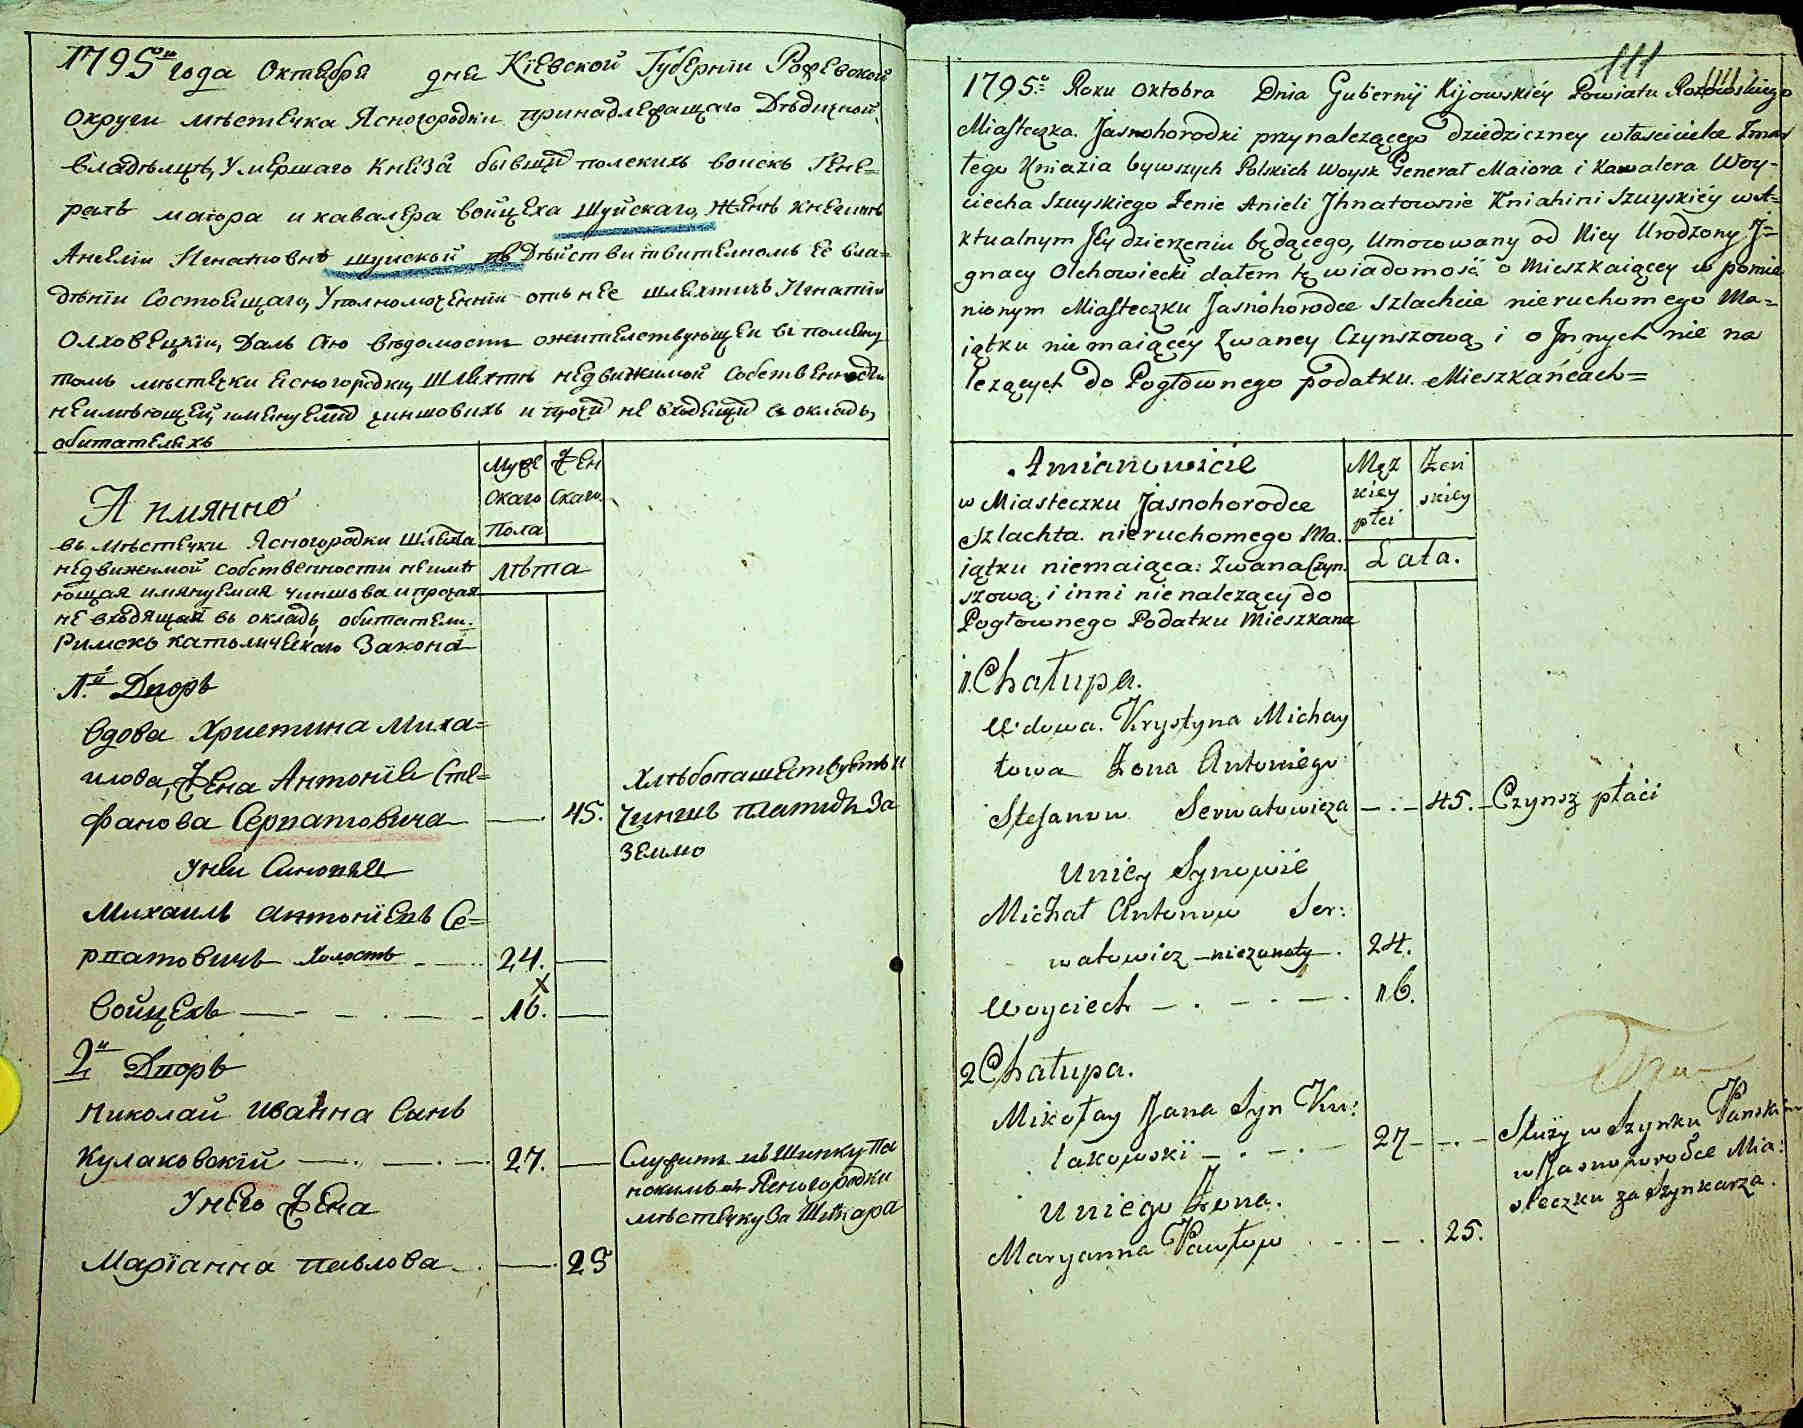 1795го года Октября дня Кіевской Губерніи Рожевской
округи мѣстечка Ясногородки принадлежащаго Дѣдичной
владѣлцѣ, Умершаго Князя бывших полских воискъ Гене=
ралъ маіора и кавалера войцеха Шуйскаго, Женѣ княгинѣ
Анеліи Игнатовнѣ шуйской въ Дѣйствивителномъ Ее вла=
дѣніи Состоящаго, Уполномоченній отъ нее шляхтичъ Игнатій
Олховецкій, Далъ Сію вѣдомость ожителствующей въ помяну
томъ мѣстечки Ясногородки, Шляхтѣ недвижимой Собственности
неимѣющей, имянуемой чиншовихъ и прочих не входящих в окладъ,
обитателяхъ
А имянно
въ Мѣстечки Ясногородки шляхта
недвижимой собственности неимѣ
ющая имянуемая чиншова и прочая
не входящая въ окладъ обитатели.
Римско католическаго Закона
Муже
скаго
Пола
Жен
скаго.
лѣта
1.й Дворъ
Вдова Христина Миха=
илова, Жена Антонія Сте=
фанова Серватовича — 45. Хлѣбопашествуетъ и
Чиншъ платитъ За
Землю
Унеи Синовья
Михаилъ антоніевъ Се=
рватовичъ Холостъ — 24. —
Войцехъ — 16. —
2й Дворъ
Николай иванна Синъ
Кулаковскій — 27. — Служитъ въ Шинку Па
нскимъ въ Ясногородки
мѣстечку За Шинкара
Унего Жена
Маріанна павлова — 25
111
1795.o Roku Oktobra Dnia Gubernij Kijowskiéy Powiatu Rozowskiego
Miasteczka. Jasnohorodki przynalezącego dziedziczney właścicielce Zmar
łego Kniazia bywszych Polskich Woysk Generał Maiora i Kawalera Woy-
ciecha Szuyskiego Zenie Anieli Jhnatownie Kniahini Szuyskiéy w A=
ktualnym Jéy dzierzeniu będącego, Umocowany od Niey Urodzony J=
gnacy Olchowiecki dałem tę wiadomość o Mieszkaiącey w pomie
nionym Miasteczku Jasnohorodce szlachcie nieruchomego Ma=
iątku nie maiącéy Zwaney Czynszową i o Jnnych nie na
lezących do Pogłownego podatku. Mieszkańcach=
Amianowicie
w Miasteczku Jasnohorodce
Szlachta. nieruchomego Ma.
iątku niemaiąca: Zwana Czyn.
szową i inni nie nalezący do
Pogłownego Podatku Mieszkanc
Męz
kiey
płci
Zeń
skiey
Lata.
1. Chałupa.
Wdowa. Krystyna Michay
łowa Zona Antoniego
Stefanow Serwatowicza — 45. — Czynsz płaci
Uniey Synowie
Michał Antonow Ser:
watowicz — niezonaty. 24.
Woyciech — 16.
2 Chałupa.
Mikołay Jana Syn Ku:
lakowski — 27 — Służy w Szynku Pańskim
w Jasnohorodce Mia:
steczku za Szynkarza.
Uniego Zona.
Maryanna Pawłow — 25.